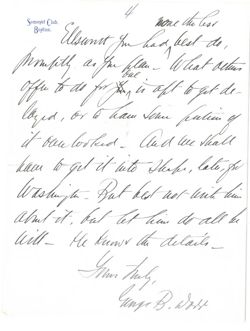 4
Somerset Club,
Boston.
none the less
you had best do,
promptly as you plan — What others
offer to do for is apt to get de-
layed, or to have some portion of
it overlooked — And we shall
have to get it into shape, later, for
Washington — But best not write him
about it, but let him do all he
will — He knows the details —
Yours truly,
George B. Dorr